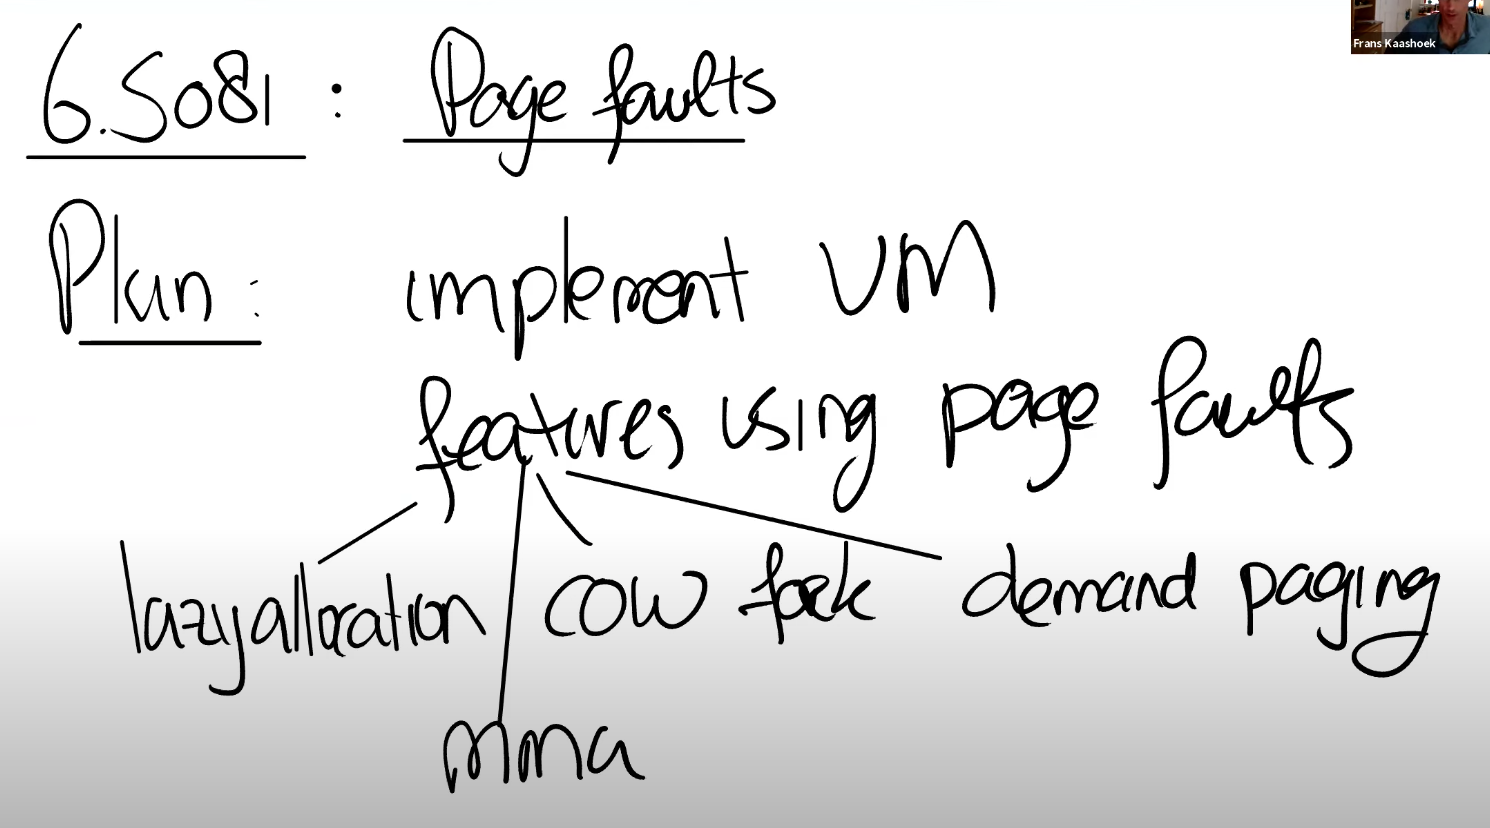 Frans Kaashoek
6.S081 : Page faults
Plan : implement VM
features using page faults
lazy allocation COW fork demand paging
mma